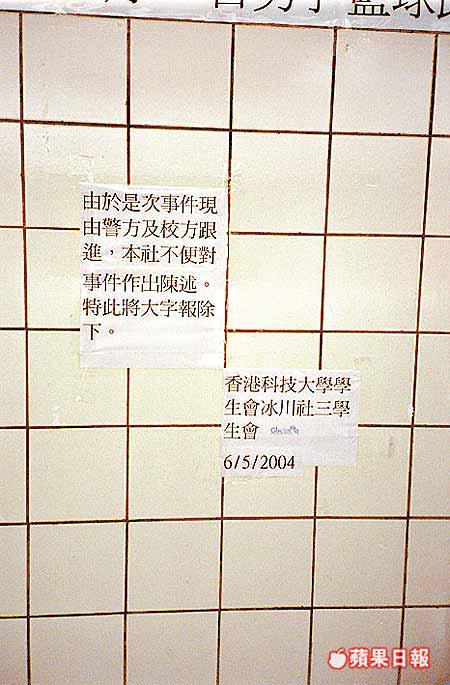 由於是次事件現
由警方及校方跟
進，本社不便對
事件作出陳述。
特此將大字報除
下。
香港科技大學學
生會冰川社三學
生會
6/5/2004
蘋果日報